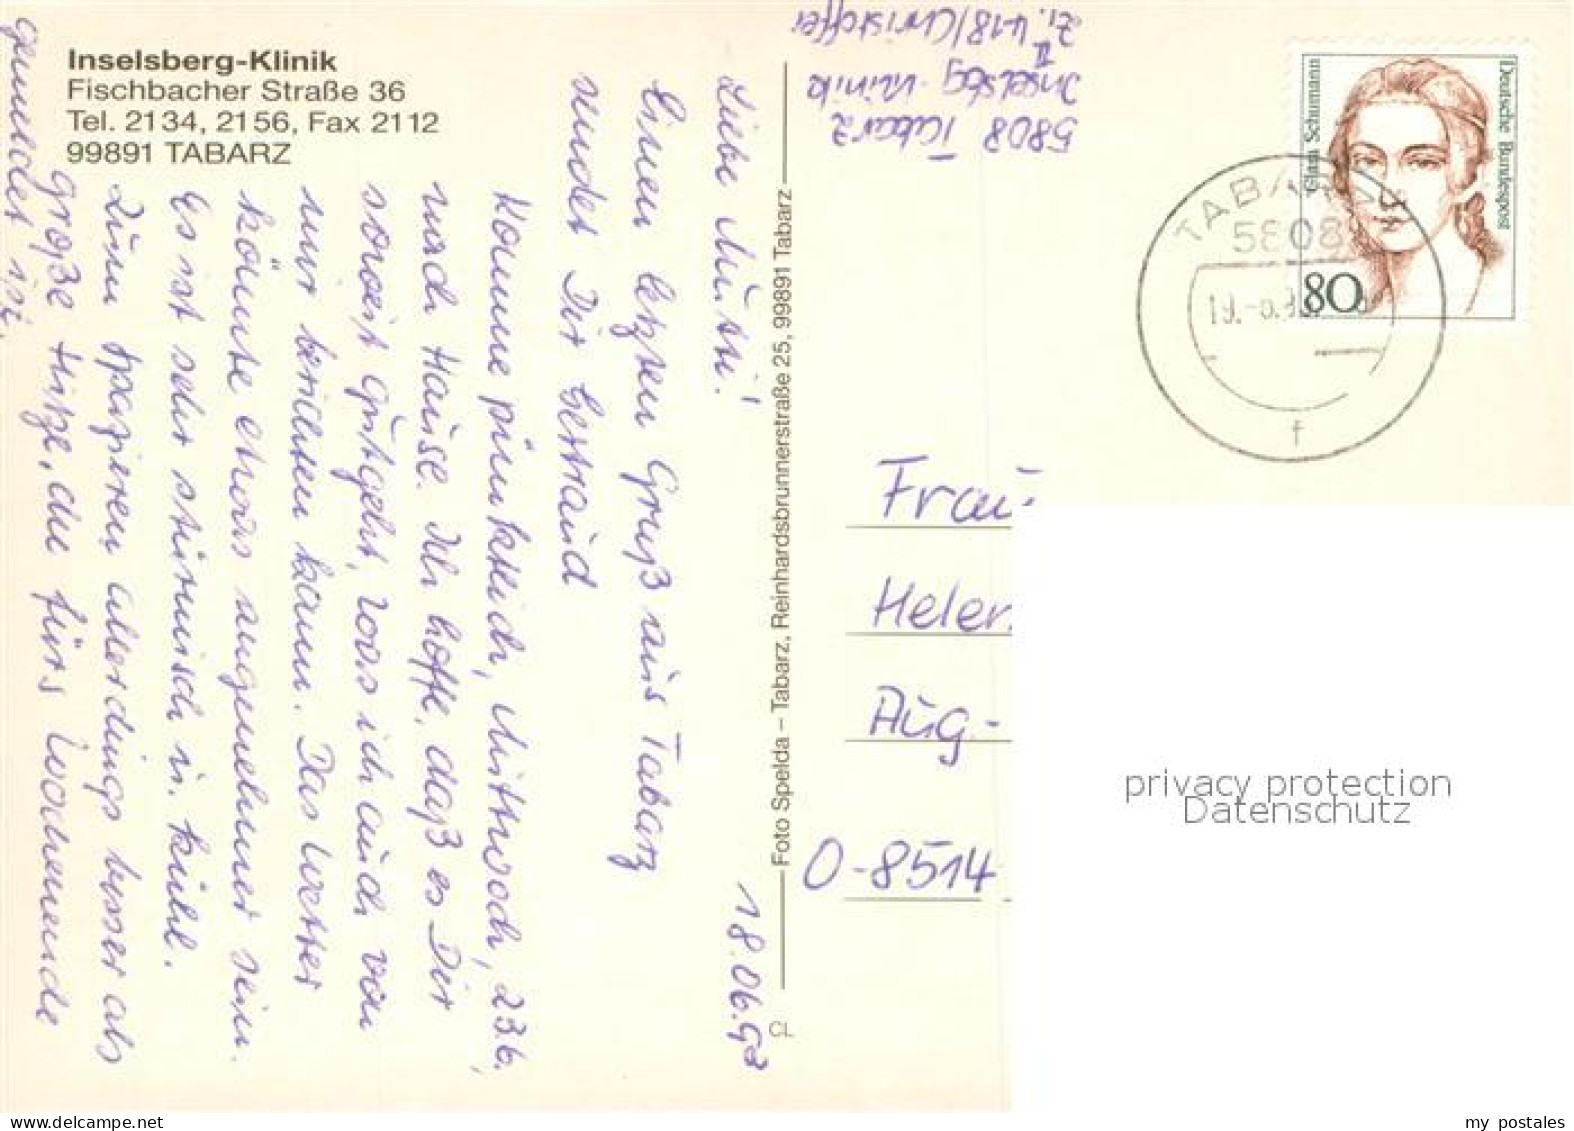 Inselsberg-Klinik
Fischbacher Straße 36
Tel. 2134, 2156, Fax 2112
99891 TABARZ
18.06.93
Liebe Mutti!
Einen letzten Gruß aus Tabarz
sendet Dir Gertraud
Komme pünktlich, Mittwoch, 23.6.,
nach Hause. Ich hoffe, daß es Dir
soweit gutgeht, was ich auch von
mir berichten kann. Das Wetter
könnte etwas angenehmer sein.
Es ist sehr stürmisch u. kühl.
Zum Spazieren allerdings besser als
große Hitze, die fürs Wochenende
gemeldet ist.
Foto Spelda – Tabarz, Reinhardsbrunnerstraße 25, 99891 Tabarz
CL
Zi. 418/Christoffei
Inselsbg.-Klinik II
5808 Tabarz
Deutsche Bundespost
Clara Schumann
80
TABARZ
5808
19.-6.93
f
Frau
Helen
Aug.-
O-8514
privacy protection
Datenschutz
www.ansichtskartenversand.com
my postales